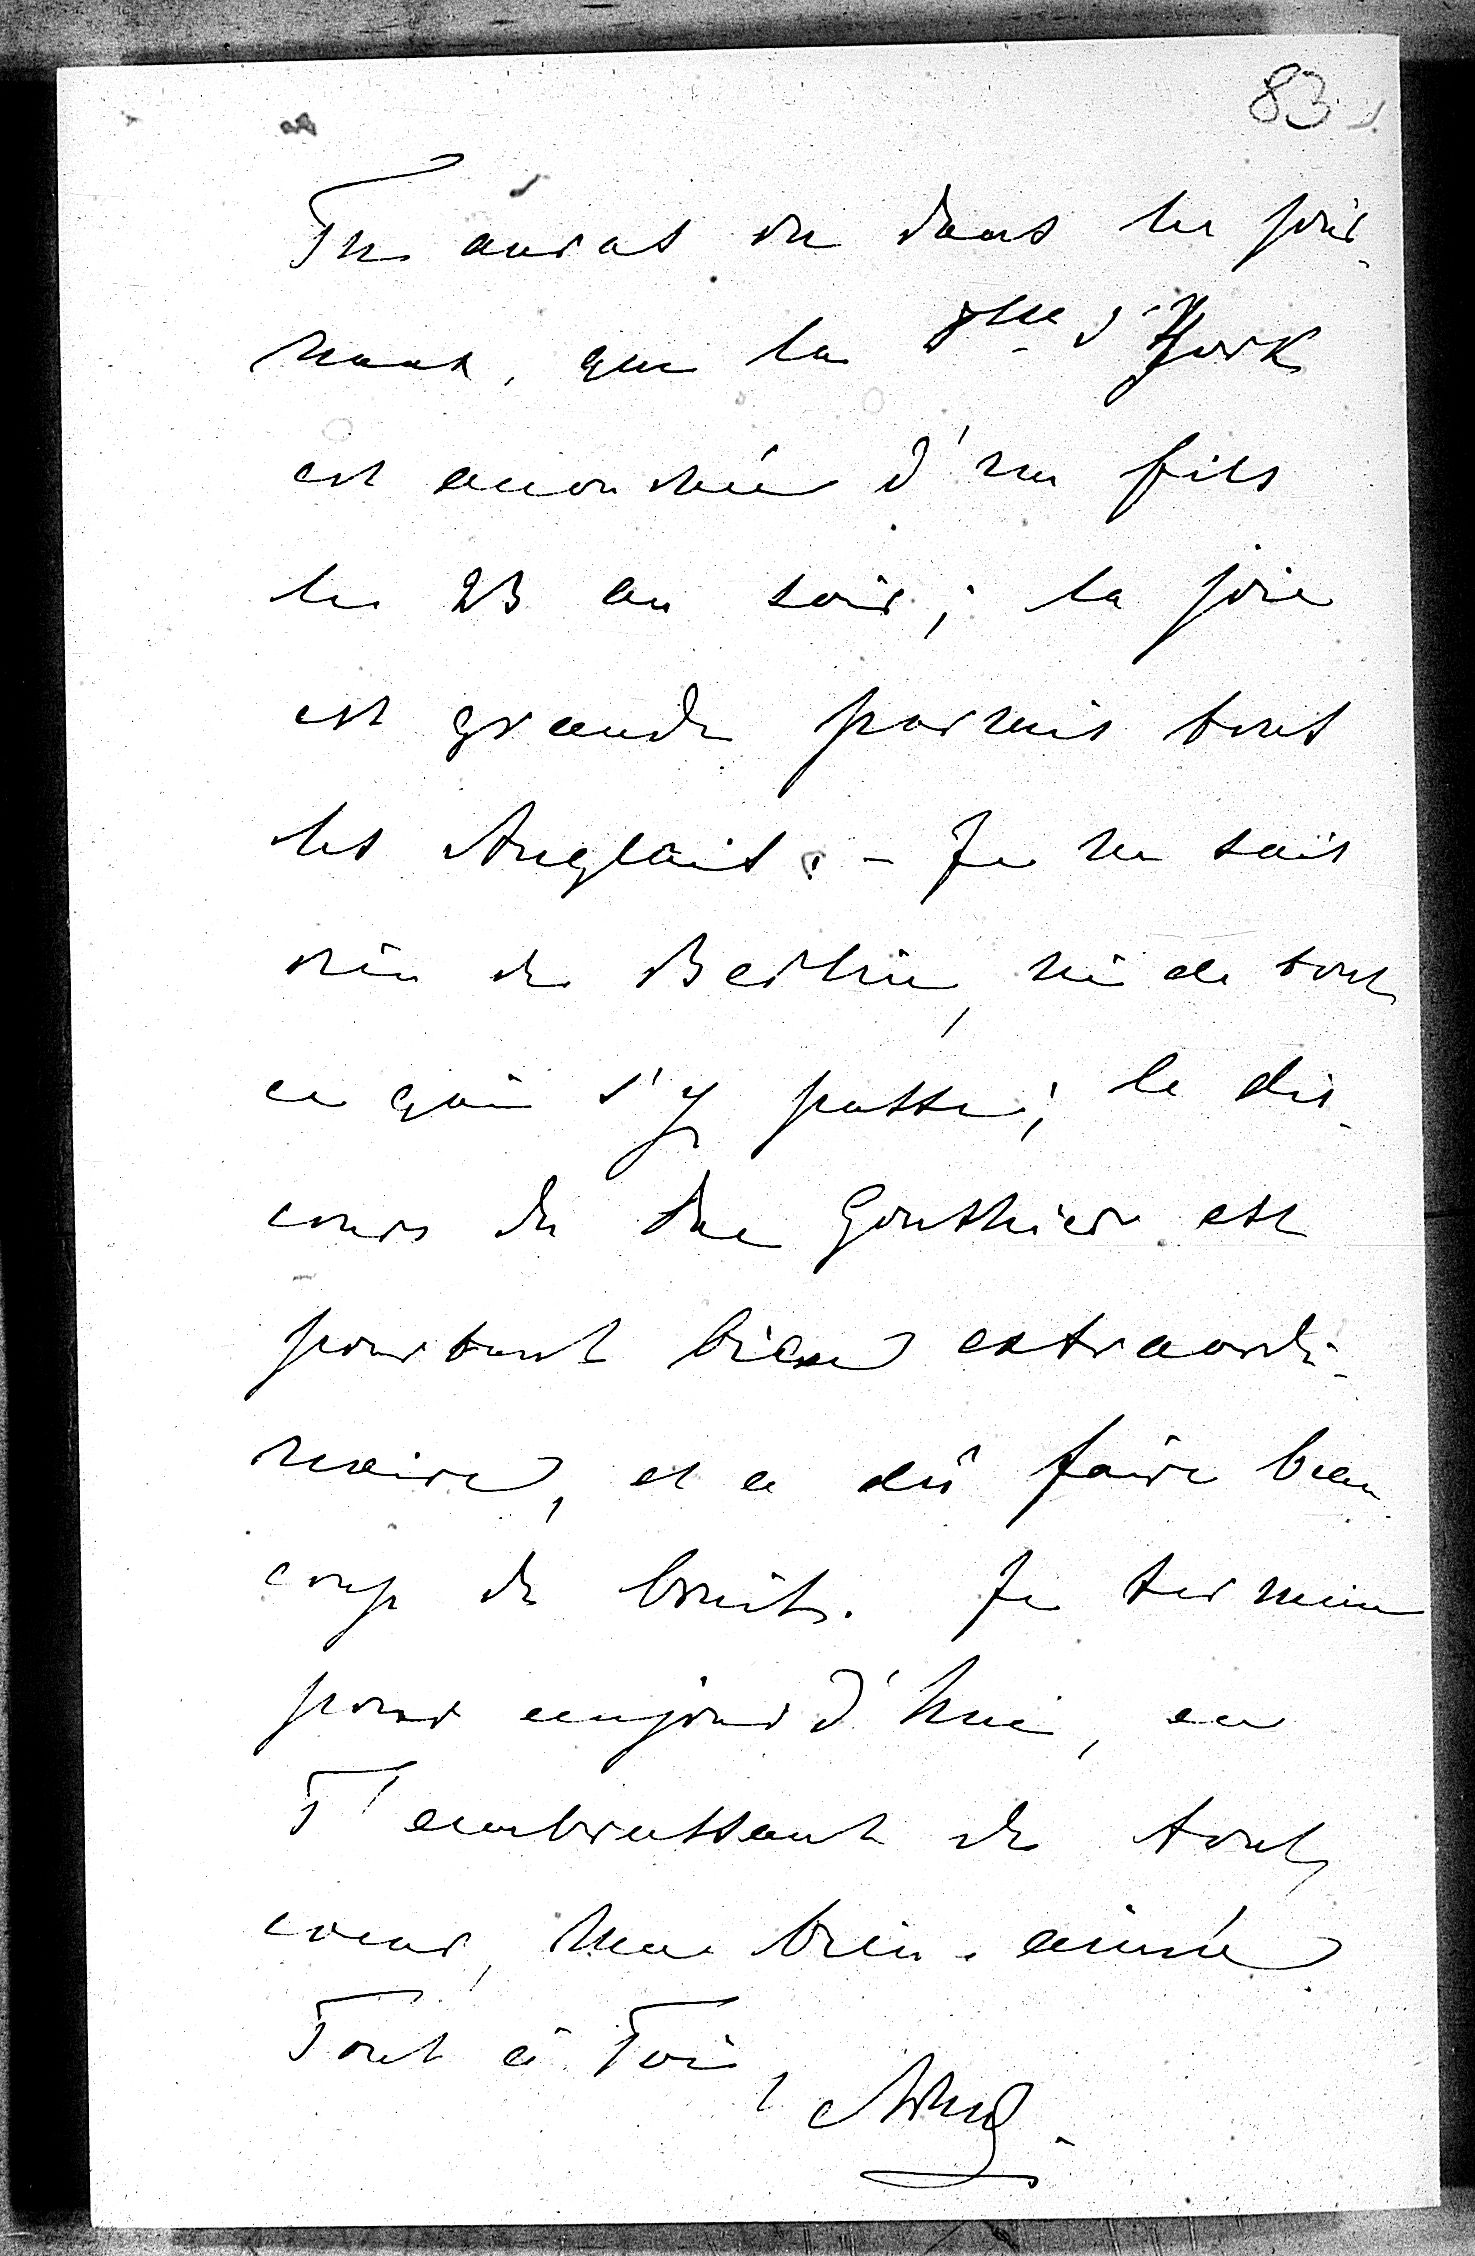 83
Tu auras vu dans les jour-
naux, que la Dsse d'York
est accouchée d'un fils
le 23 au soir; la joie
est grande parmis tous
les Anglais. - Je ne sais
rien de Berlin, ni de tout
ce qui s'y passe; le dis-
cours du Duc Gonthier est
pourtant bien extraordi-
naire, et a dû faire beau
coup de bruit. Je termine
pour aujourd'hui, en
T'embrassant de tout
coeur, mon bien-aimé
Tout à Toi,